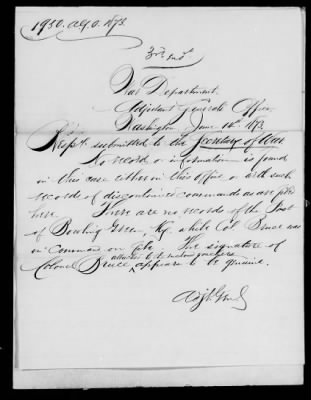 1930. A.G.O. 1873.
3rd Ind.
War Department
Adjutant General's Office
Washington June 14th 1873.
Resp'y submitted to the Secretary of War
No record or information is found
in this case either in this Office or with such
records of discontinued commands as are filed
here. There are no records of the Post
of Bowling Green, Ky. while Col. Bruce was
in command on file. The signature of
attached to the within vouchers
Colonel Bruce appears to be genuine.